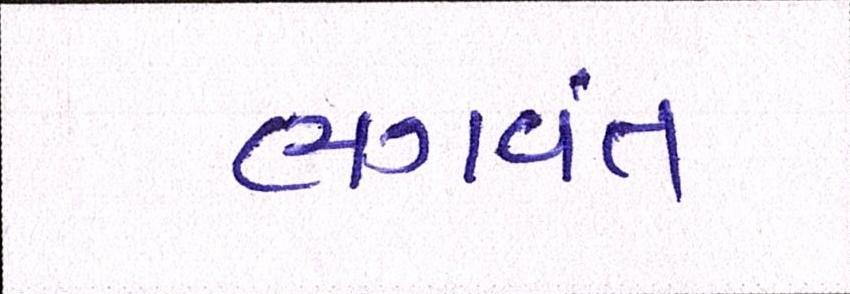 ભગવંત